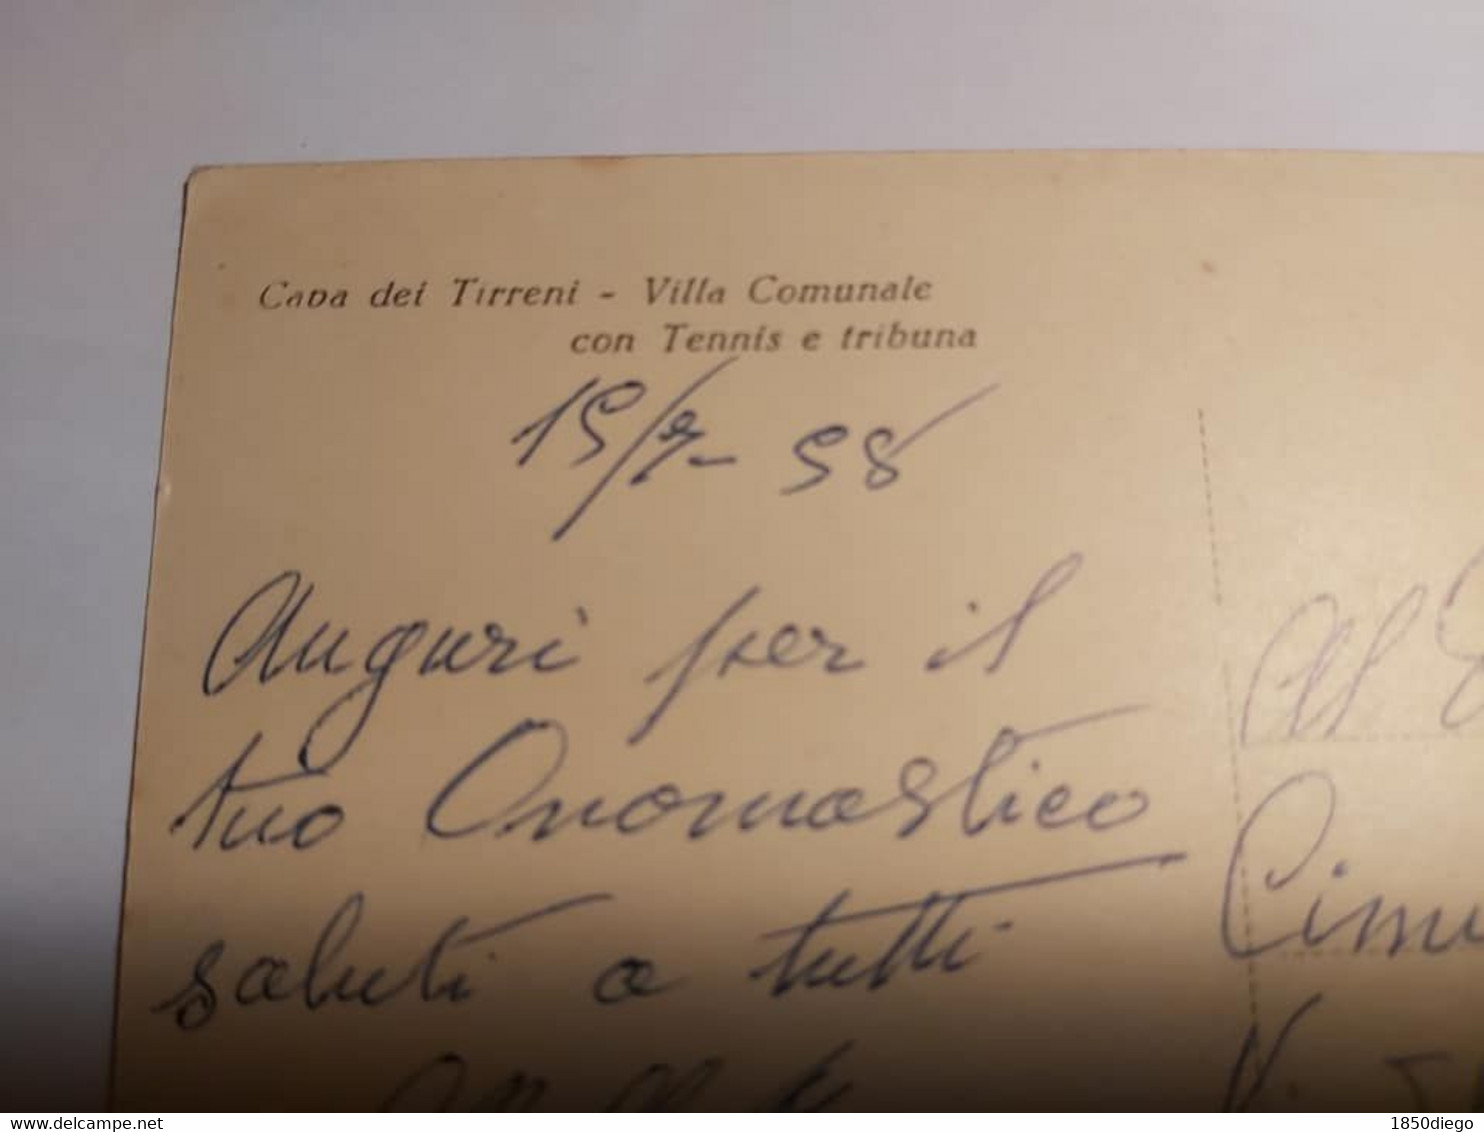 Cava dei Tirreni - Villa Comunale
con Tennis e tribuna
Auguri per il
tuo Onomastico
saluti a tutti
Al
www.delcampe.net
1850diego